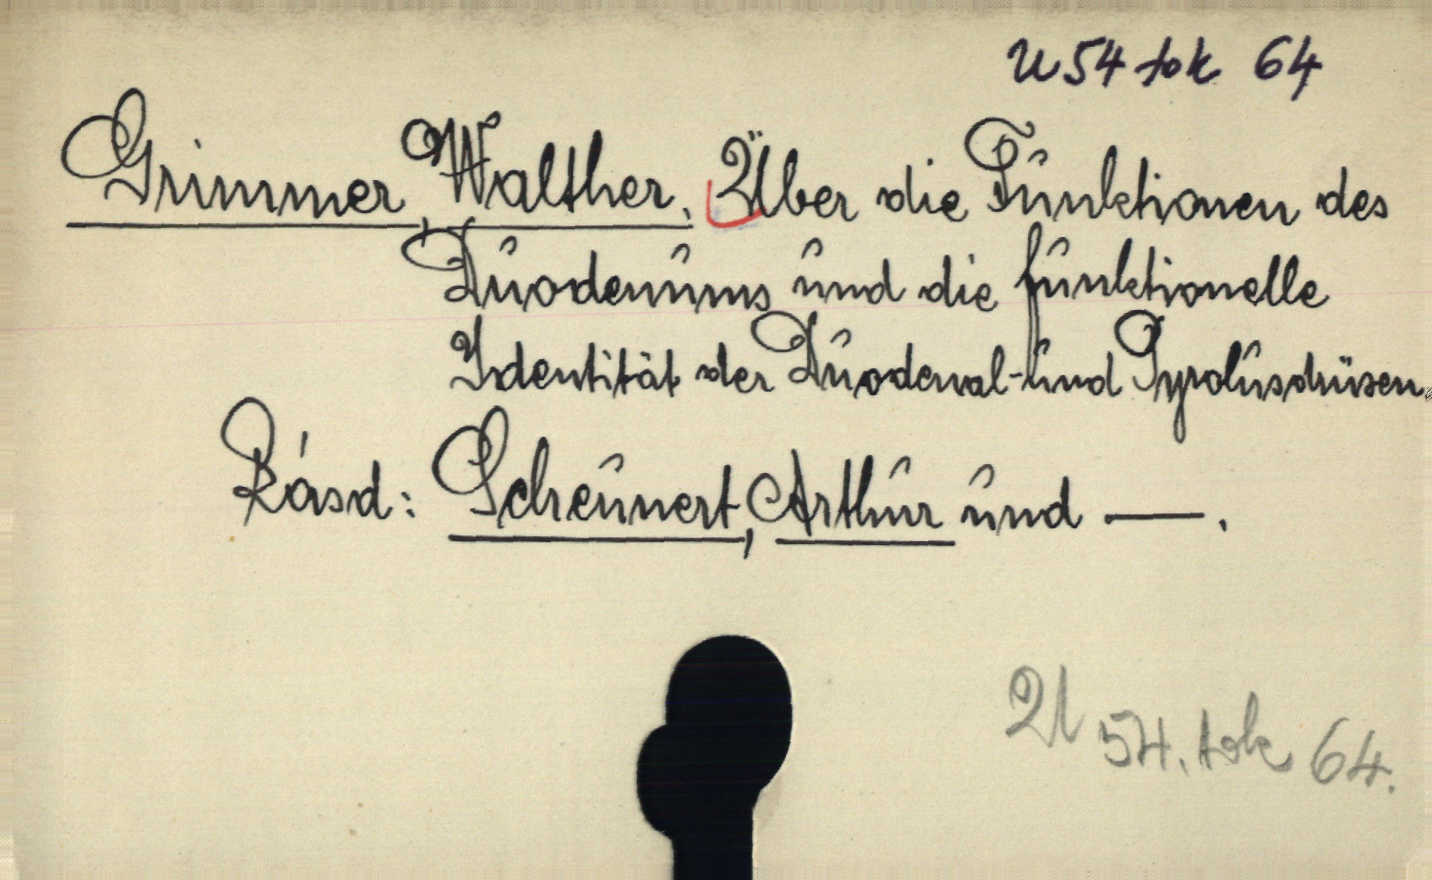 U 54 tok 64
Grimmer, Walther. Über die Funktionen des
Duodenums und die funktionelle
Identität der Duodenal- und Pyrolusdrüsen.
Rásd: Scheunert, Arthur und —.
U 54. tok 64.